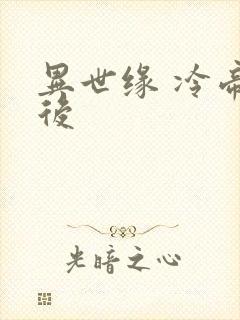 異世缘 冷帝
後
光暗之心